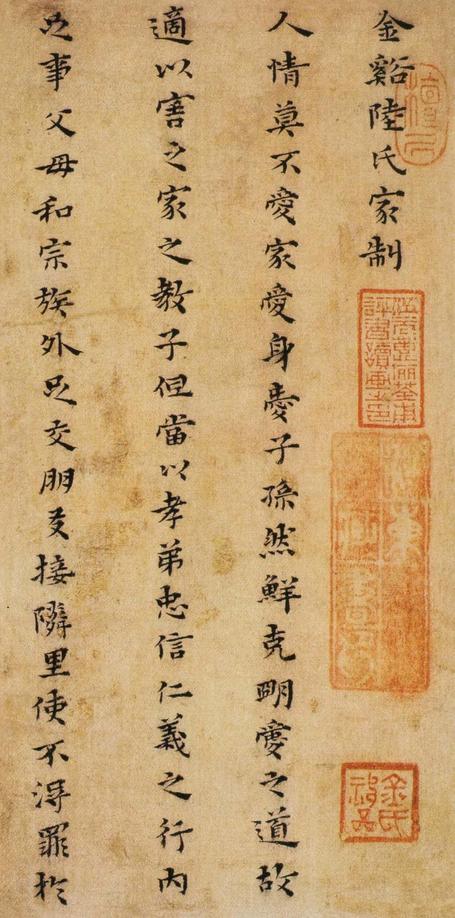 金谿陸氏家制
人情莫不愛家愛身愛子孫然鮮克明愛之道故
適以害之家之教子但當以孝弟忠信仁義之行内
足事父母和宗族外足交朋友接隣里使不得罪於